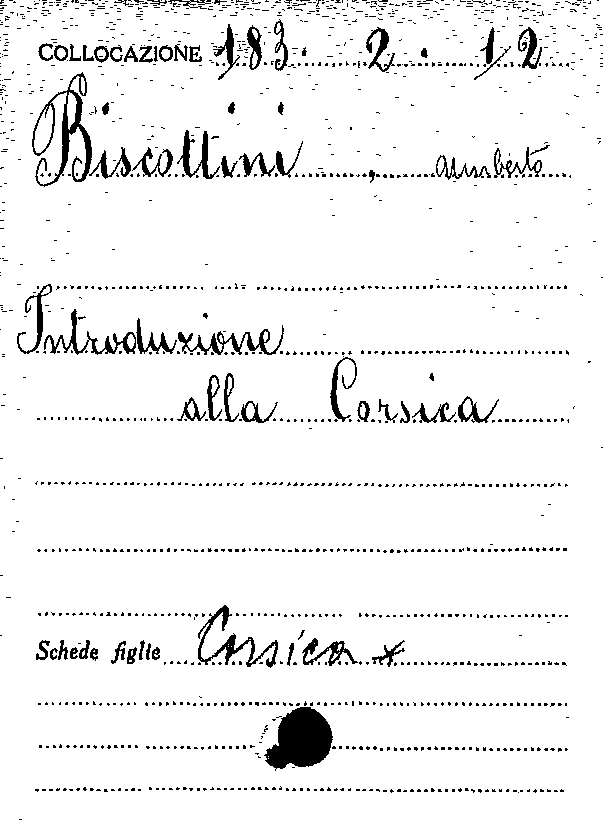 COLLOCAZIONE 183. 2. 12
Biscottini, Umberto
Introduzione
alla Corsica
Schede figlie Corsica *